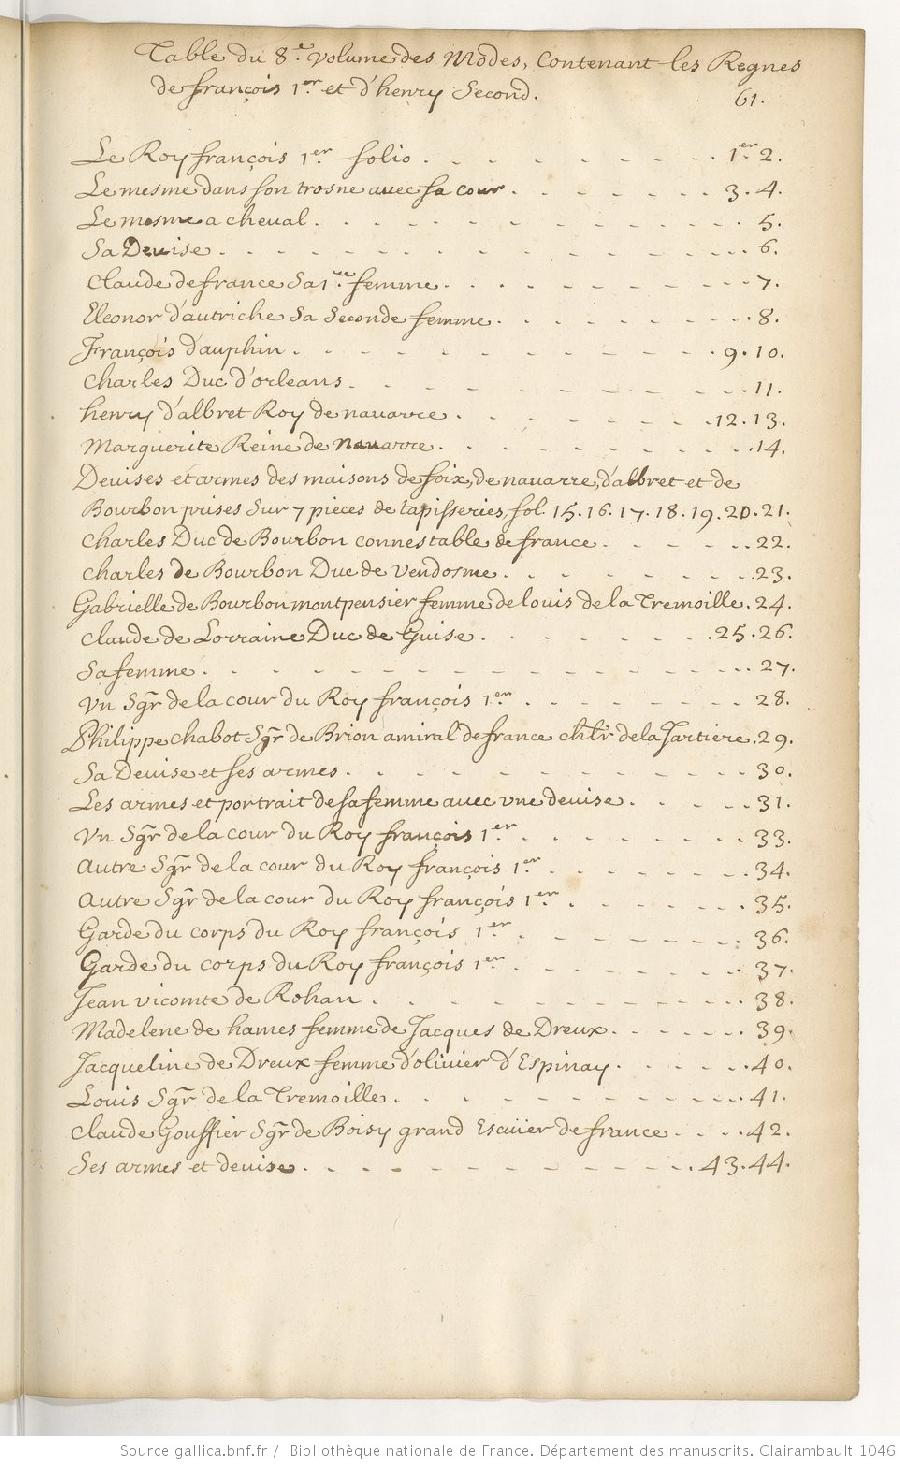 Table du 8.e volume des Modes, Contenant les Regnes
de françois 1.er et d'henry Second.
61.
Le Roy françois 1.er folio . - - - - - - - - 1.er 2.
Le mesme dans son trosne avec sa cour . - - - - - - 3. 4.
Le mesme a cheval . - - - - - - - - - - - 5.
Sa Devise . - - - - - - - - - - - - - 6.
Claude de france Sa 1.ere femme . - - - - - - - - 7.
Eleonor d'autriche Sa Seconde femme . - - - - - - - 8.
François Dauphin . - - - - - - - - - - 9. 10.
Charles Duc d'orleans . - - - - - - - - - - 11.
henry d'albret Roy de navarre . - - - - - - 12. 13.
Marguerite Reine de Navarre . - - - - - - - - 14.
Devises et armes des maisons de foix, de navarre, d'albret et de
Bourbon prises Sur 7 pieces de tapisseries, fol. 15. 16. 17. 18. 19. 20. 21.
Charles Duc de Bourbon connestable de france . - - - - 22.
Charles de Bourbon Duc de Vendosme . - - - - - - 23.
Gabrielle de Bourbon montpensier femme de louis de la Tremoille . 24.
Claude de Lorraine Duc de Guise . - - - - - - 25. 26.
Sa femme . - - - - - - - - - - - - - 27.
Un Sgr de la cour du Roy françois 1.er . - - - - - - 28.
Philippe chabot Sgr de Brion amiral de france chlr. de la Jartiere . 29.
Sa Devise et ses armes . - - - - - - - - - - 30.
Les armes et portrait de sa femme avec une devise . - - - - 31.
Un Sgr de la cour du Roy françois 1.er . - - - - - - 33.
Autre Sgr de la cour du Roy françois 1.er . - - - - - 34.
Autre Sgr de la cour du Roy françois 1.er . - - - - - 35.
Garde du corps du Roy françois 1.er . - - - - - - 36.
Garde du corps du Roy françois 1.er . - - - - - - 37.
Jean vicomte de Rohan . - - - - - - - - - 38.
Madelene de hames femme de Jacques de Dreux . - - - - 39.
Jacqueline de Dreux femme d'olivier d'Espinay . - - - - 40.
Louis Sgr de la Tremoille . - - - - - - - - - 41.
Claude Gouffier Sgr de Boisy grand Escuier de france . - - - 42.
Ses armes et devise . - - - - - - - - - - 43. 44.
Source gallica.bnf.fr / Bibliothèque nationale de France. Département des manuscrits. Clairambault 1046